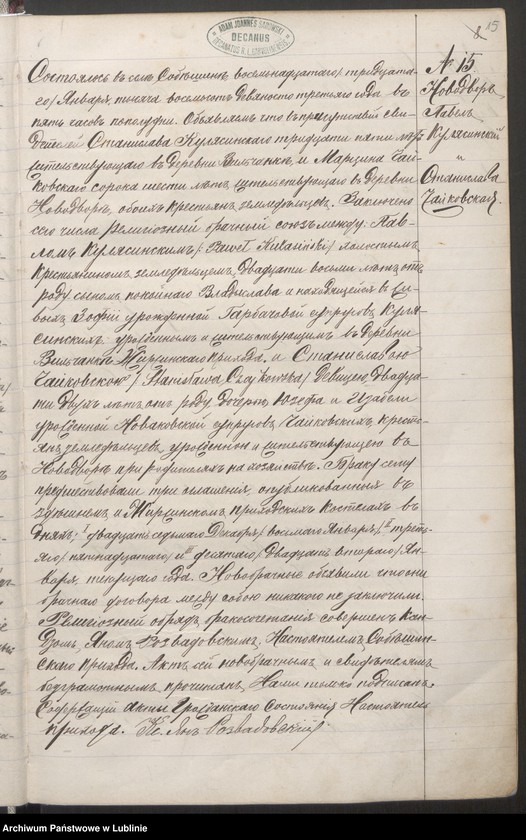 ADAM JOANNES SADOWSKI
DECANUS
8 15
№ 15
Новодворъ
Павелъ
Кулясинскій
"
Станислава
Чайковская.
Состоялось въ селѣ Собѣшинѣ восемьнадцатаго / тридцата-
го / Января, тысяча восемьсотъ девяносто третьяго года въ
пять часовъ пополудни. Объявляемъ что въ присутствіи сви-
дѣтелей Станислава Кулясинскаго тридцати пяти лѣтъ
жительствующаго въ деревни Вильчанка, и Марцина Чай-
ковскаго сорока шести лѣтъ, жительствующаго въ деревни
Новодворъ, обоихъ крестьянъ земледѣльцевъ. Заключено
сего числа религіозный брачный союзъ между: Пав-
ломъ Кулясинскимъ / Paweł Kulasiński / холостымъ
крестьяниномъ, земледѣльцемъ, двадцати восьми лѣтъ отъ
роду сыномъ покойнаго Владислава и находящейся въ жи-
выхъ Зофіи урожденной Гарбачовой супруговъ Куля-
синскихъ уродённымъ и жительствующимъ въ деревни
Вильчанка Жиржинскаго прихода. и Станиславою
Чайковскою / Stanisława Czajkowska / девицею, двадца-
ти двухъ лѣтъ отъ роду, дочерью Юзефа и Изабели
уродённой Новаковской супруговъ Чайковскихъ кресть-
янъ земледѣльцевъ, уродённою и жительствующею въ
Новодворѣ при родителяхъ на хозяйствѣ. Браку сему
предшествовали три оглашенія опубликованныя въ
здѣшнемъ и Жиржинскомъ приходскихъ костелахъ въ
дняхъ: I двадцать седьмаго Декабря / восьмаго Января / II треть-
яго / пятнадцатаго / и III десятаго / двадцать втораго / Ян-
варя, текущаго года. Новобрачные объявили что они
брачнаго договора между собою никакого не заключили.
Религіозный обрядъ бракосочетанія совершенъ Ксен-
дзомъ Яномъ Розвадовскимъ, Настоятелемъ Собѣшин-
скаго прихода. Актъ сей новобрачнымъ и свидѣтелямъ
безграмотнымъ прочитанъ, Нами только подписанъ.
Содержащій акты гражданскаго состоянія Настоятель
прихода. Кс. Янъ Розвадовскій
Archiwum Państwowe w Lublinie